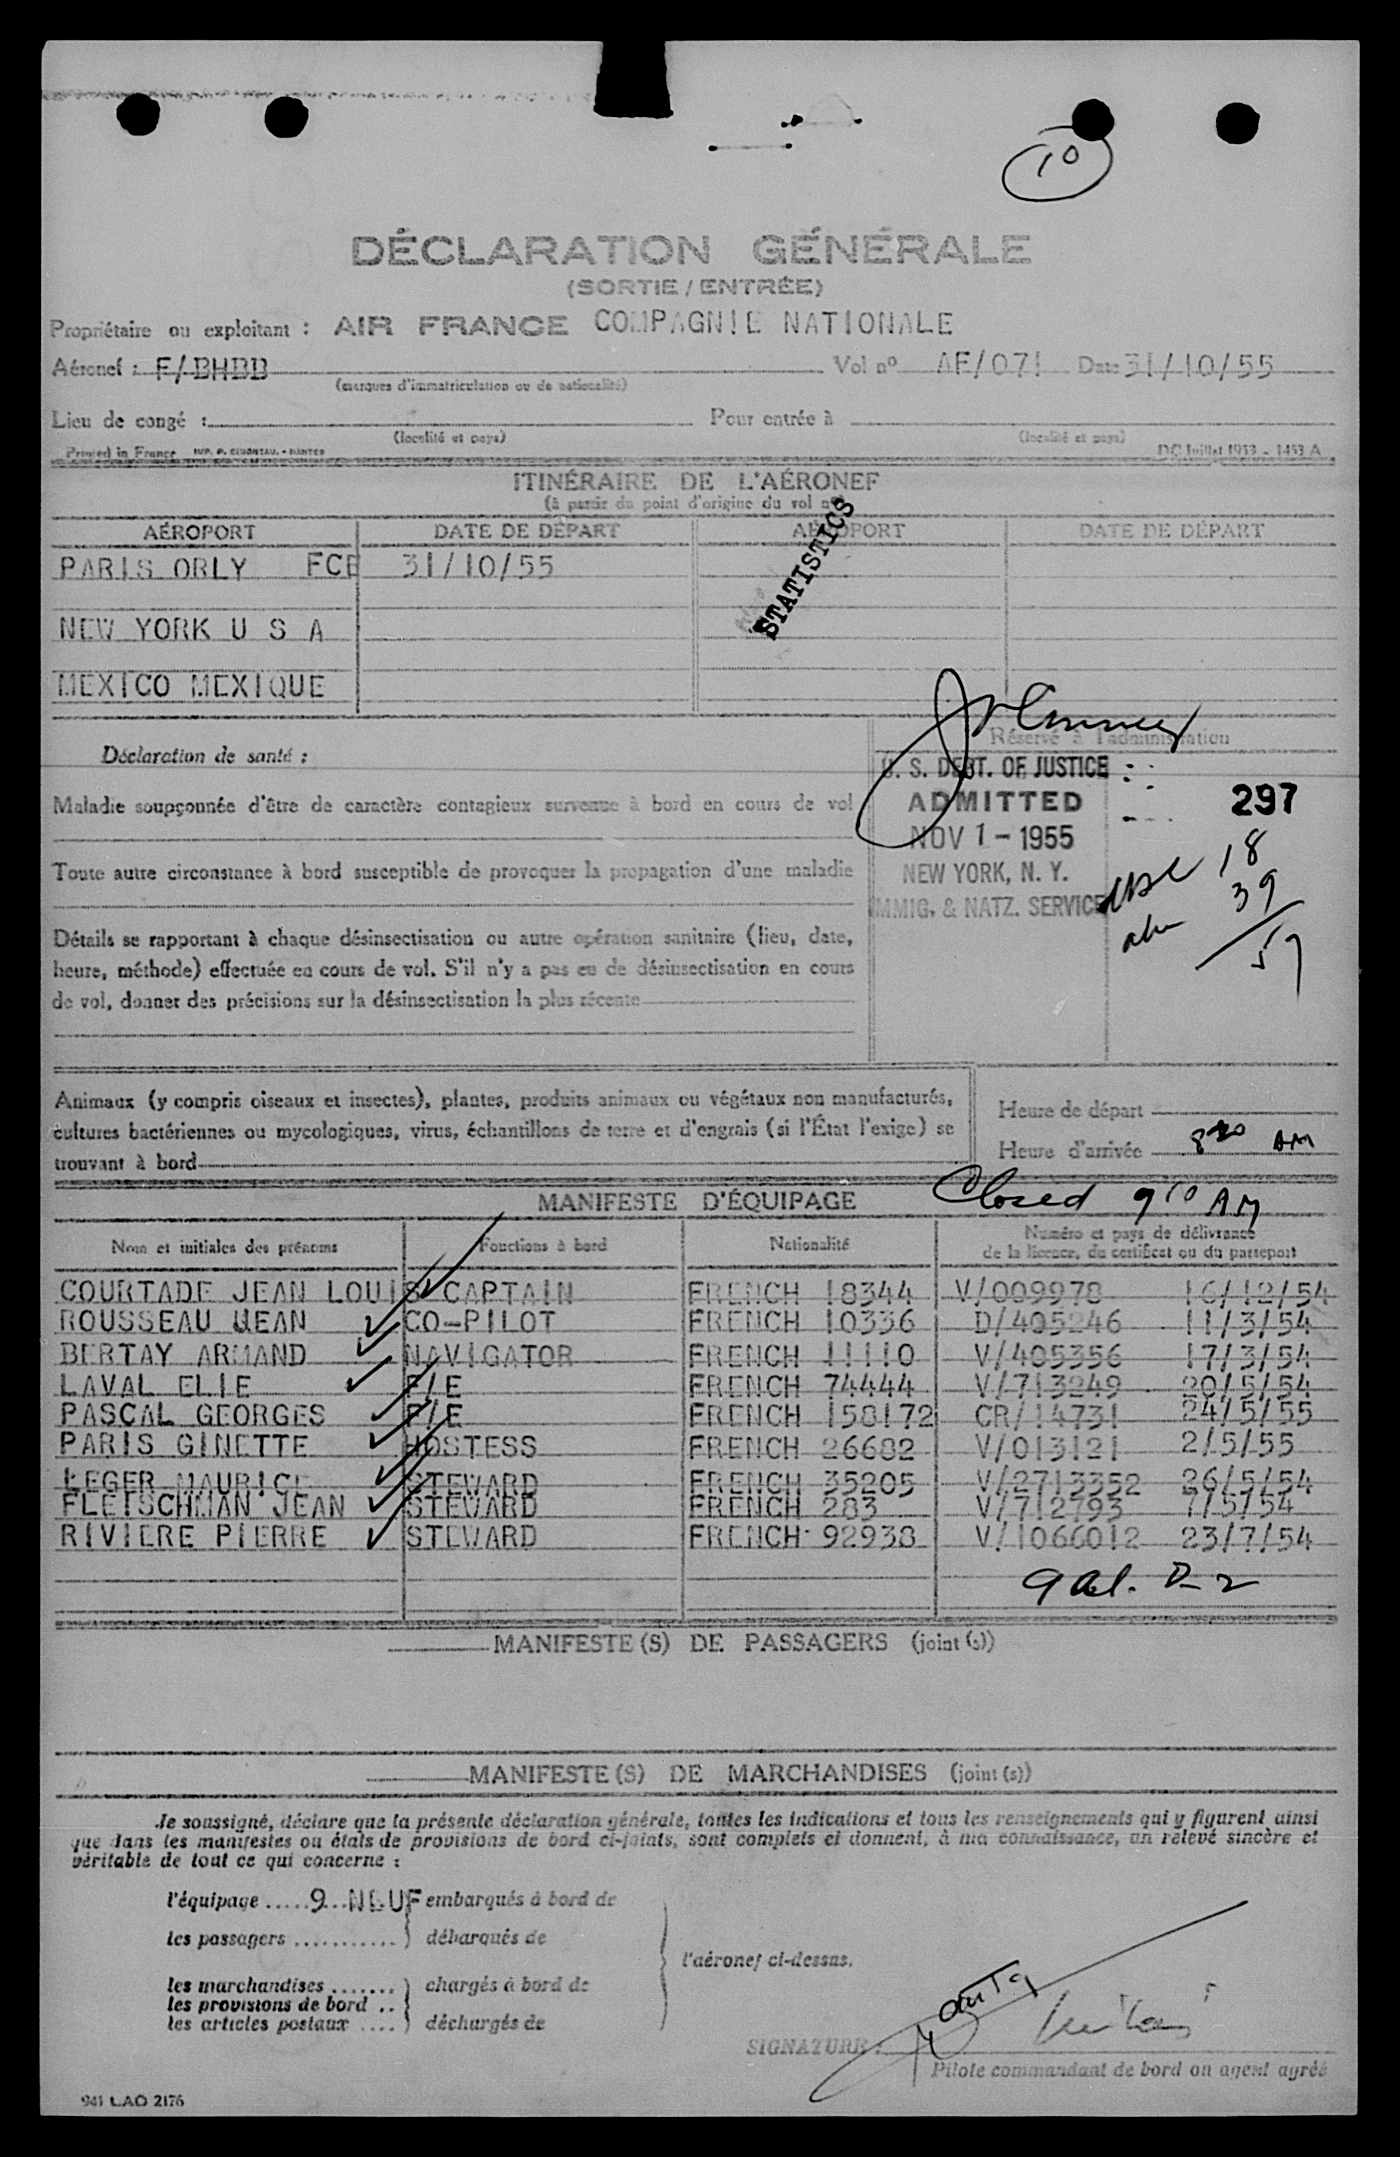 10
DÉCLARATION GÉNÉRALE
(SORTIE / ENTRÉE)
Propriétaire ou exploitant : AIR FRANCE COMPAGNIE NATIONALE
Aéronef : F/BHBB Vol nº AF/071 Date 31/10/55
(marques d'immatriculation ou de nationalité)
Lieu de congé : Pour entrée à
(localité et pays) (localité et pays)
Printed in France DC Juillet 1953 - 1453 A
ITINÉRAIRE DE L'AÉRONEF
(à partir du point d'origine du vol nº)
AÉROPORT DATE DE DÉPART AÉROPORT DATE DE DÉPART
PARIS ORLY FCE 31/10/55
STATISTICS
NEW YORK U S A
MEXICO MEXIQUE
Réservé à l'administration
Déclaration de santé :
U. S. DEPT. OF JUSTICE
ADMITTED
NOV 1 - 1955
NEW YORK, N. Y.
IMMIG. & NATZ. SERVICE
297
usc 18
alm 39
57
Maladie soupçonnée d'être de caractère contagieux survenue à bord en cours de vol
Toute autre circonstance à bord susceptible de provoquer la propagation d'une maladie
Détails se rapportant à chaque désinsectisation ou autre opération sanitaire (lieu, date,
heure, méthode) effectuée en cours de vol. S'il n'y a pas eu de désinsectisation en cours
de vol, donner des précisions sur la désinsectisation la plus récente
Animaux (y compris oiseaux et insectes), plantes, produits animaux ou végétaux non manufacturés,
cultures bactériennes ou mycologiques, virus, échantillons de terre et d'engrais (si l'État l'exige) se
trouvant à bord
Heure de départ
Heure d'arrivée 8 20 AM
Closed 9 10 AM
MANIFESTE D'ÉQUIPAGE
Nom et initiales des prénoms Fonctions à bord Nationalité Numéro et pays de délivrance
de la licence, du certificat ou du passeport
COURTADE JEAN LOUIS CAPTAIN FRENCH 18344 V/009978 16/12/54
ROUSSEAU JEAN CO-PILOT FRENCH 10336 D/405246 11/3/54
BERTAY ARMAND NAVIGATOR FRENCH 11110 V/405356 17/3/54
LAVAL ELIE F/E FRENCH 74444 V/713249 20/5/54
PASCAL GEORGES F/E FRENCH 158172 CR/14731 24/5/55
PARIS GINETTE HOSTESS FRENCH 26682 V/013121 2/5/55
LEGER MAURICE STEWARD FRENCH 35205 V/2713352 26/5/54
FLEISCHMAN JEAN STEWARD FRENCH 283 V/712793 7/5/54
RIVIERE PIERRE STEWARD FRENCH 92938 V/1066012 23/7/54
9 Ad. D-2
MANIFESTE(S) DE PASSAGERS (joint(s))
MANIFESTE(S) DE MARCHANDISES (joint(s))
Je soussigné, déclare que la présente déclaration générale, toutes les indications et tous les renseignements qui y figurent ainsi
que dans les manifestes ou états de provisions de bord ci-joints, sont complets et donnent, à ma connaissance, un relevé sincère et
véritable de tout ce qui concerne :
l'équipage ..... 9 NEUF embarqués à bord de
les passagers ........... débarqués de
l'aéronef ci-dessus.
les marchandises ....... chargés à bord de
les provisions de bord ..
les articles postaux .... déchargés de
SIGNATURE :
Pilote commandant de bord ou agent agréé
941 LAO 2176